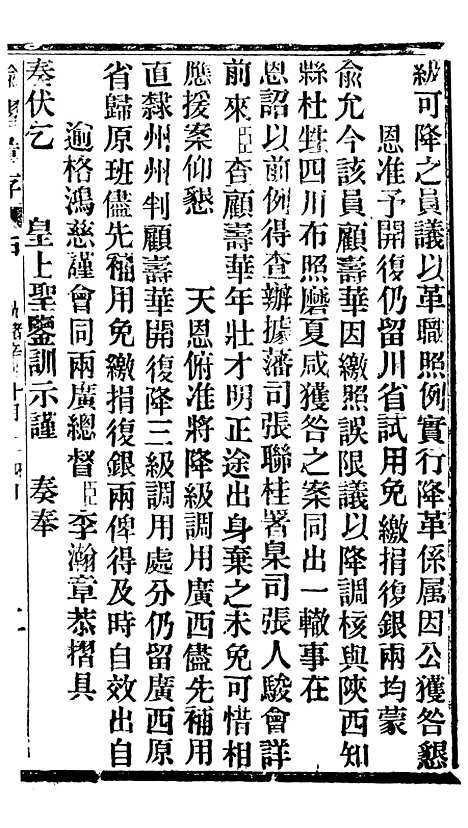 級可降之員議以革職照例實行降革係属因公獲咎懇
恩准予開復仍留川省試用免繳捐復銀兩均蒙
俞允今該員顧壽華因繳照誤限議以降調核與陝西知
縣杜甡四川布照磨夏咸獲咎之案同出一轍事在
恩詔以前例得查辦據藩司張聯桂署臬司張人駿會詳
前來臣查顧壽華年壯才明正途出身棄之未免可惜相
應援案仰懇 天恩俯准將降級調用廣西儘先補用
直隸州州判顧壽華開復降三級調用處分仍留廣西原
省歸原班儘先補用免繳捐復銀兩俾得及時自效出自
逾格鴻慈謹會同兩廣總督臣李瀚章恭摺具
奏伏乞 皇上聖鑒訓示謹 奏奉